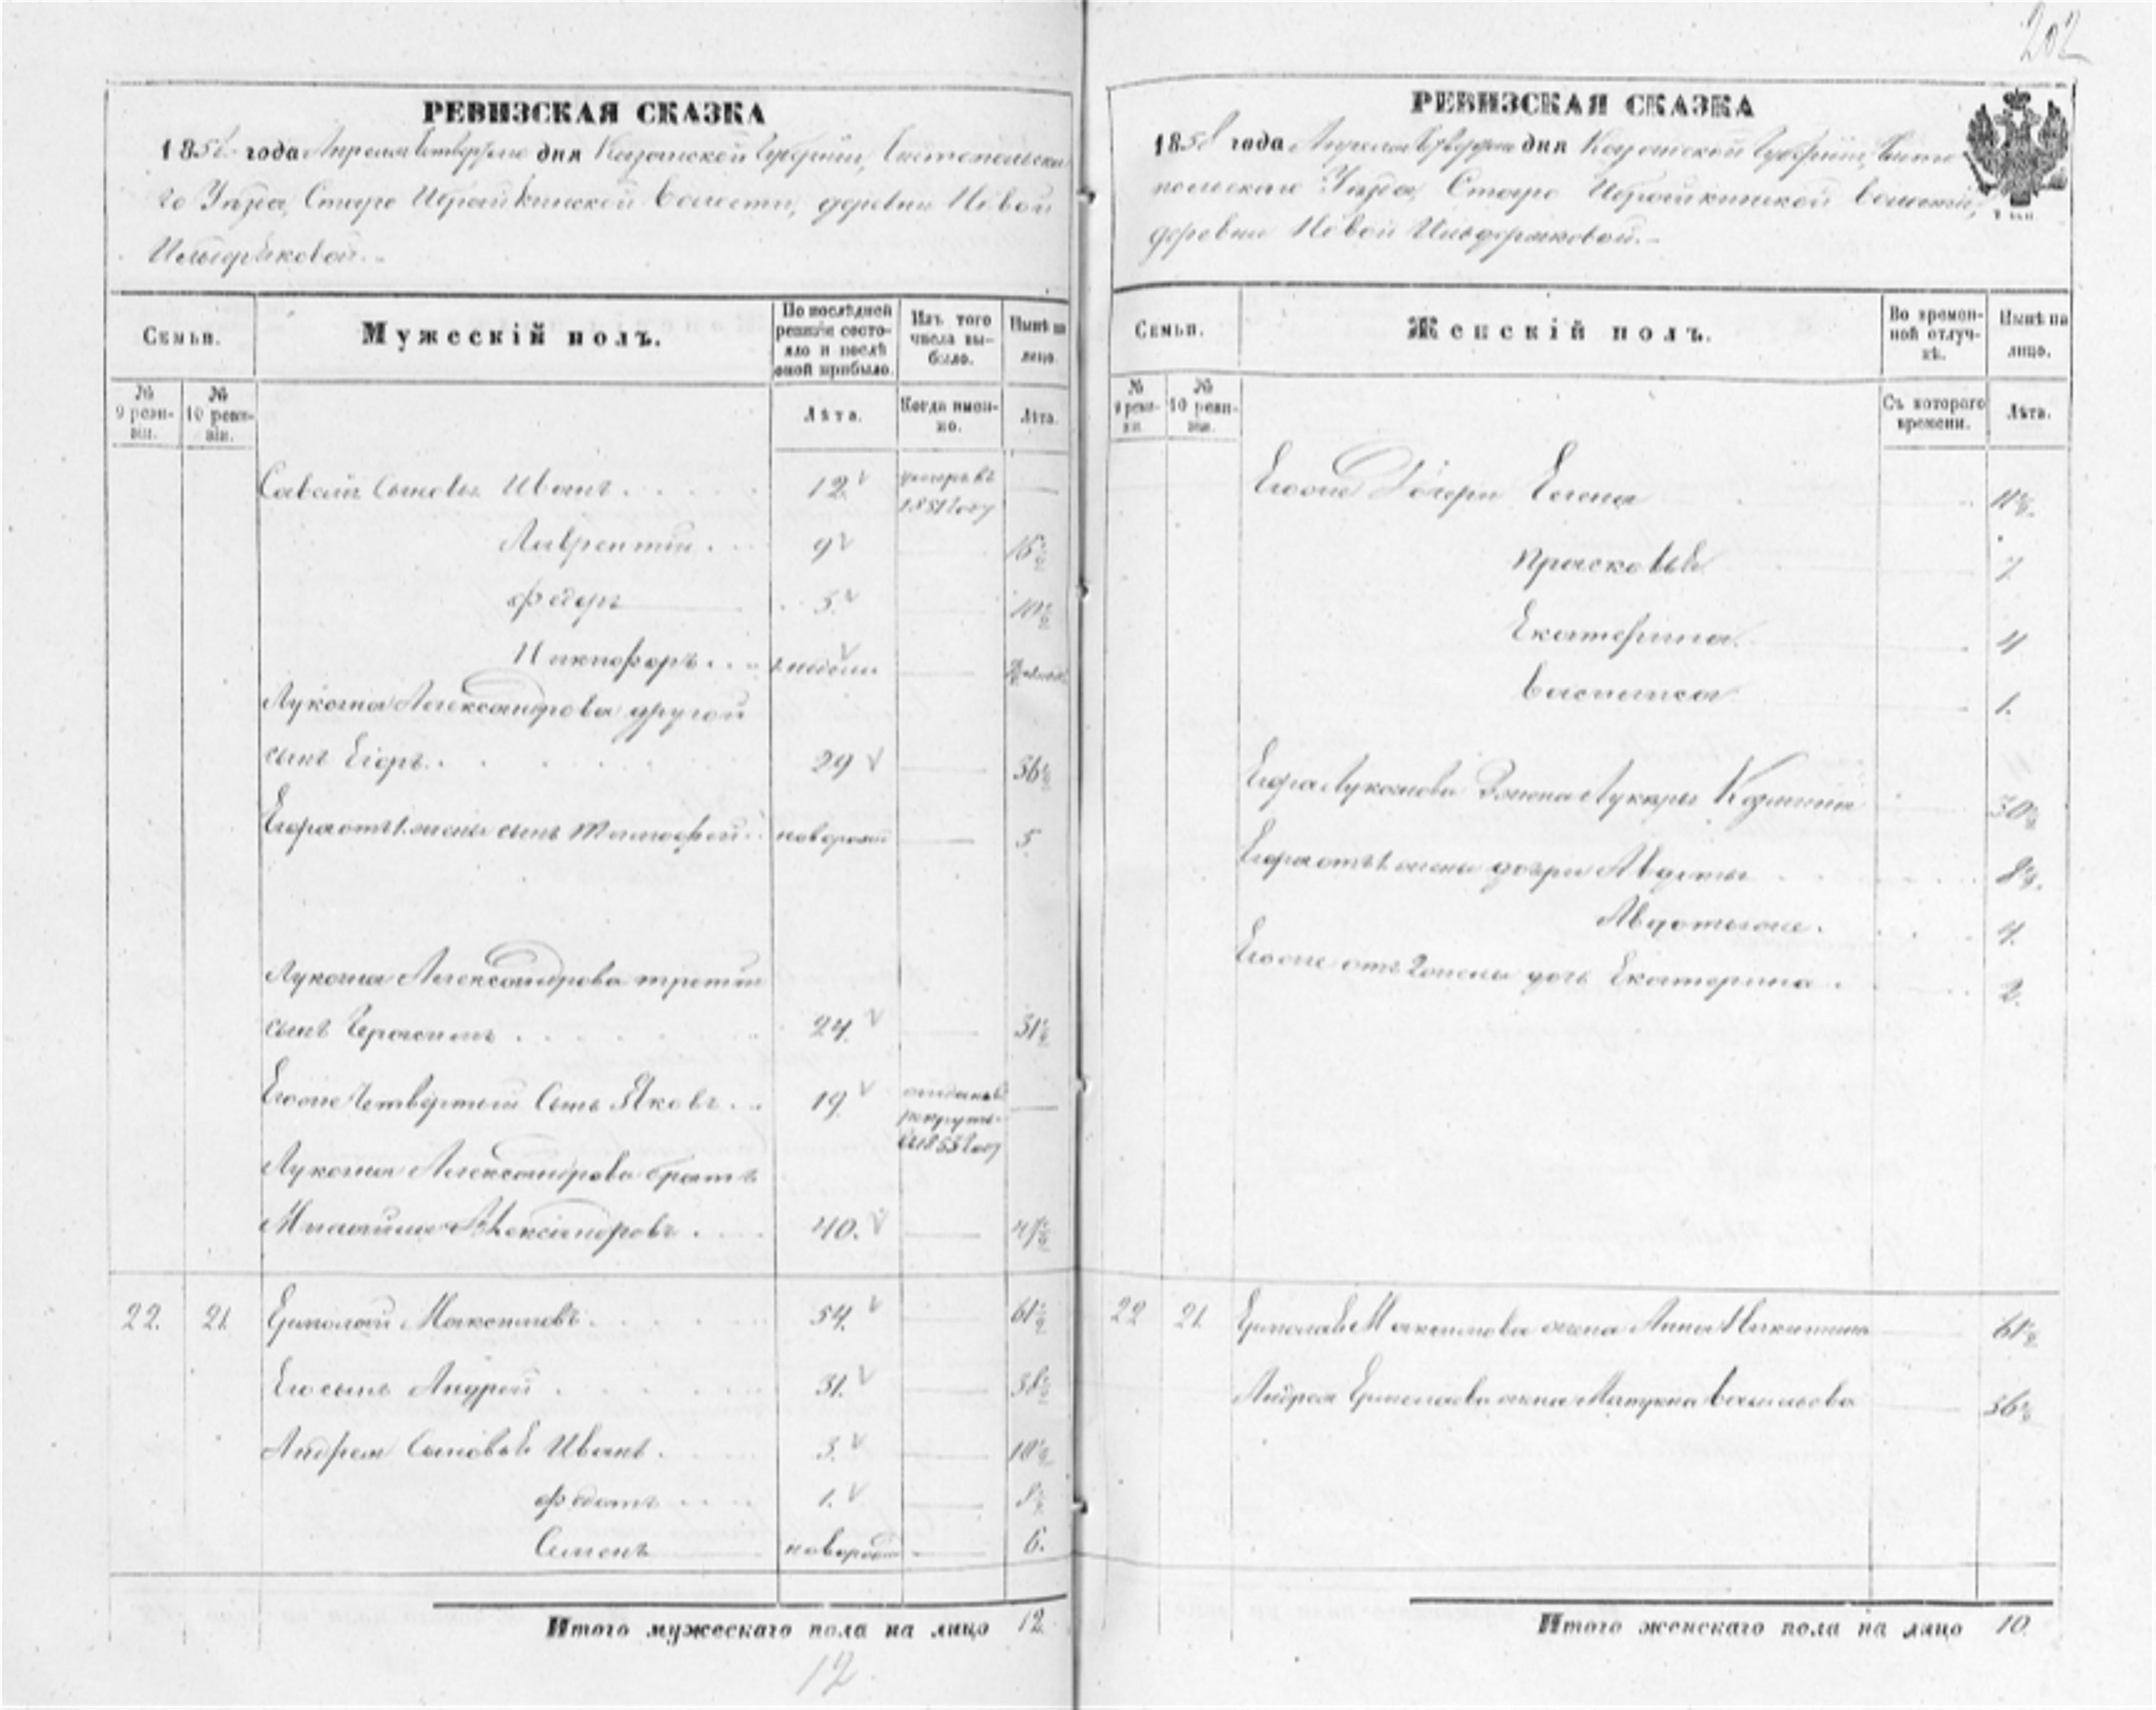 202
РЕВИЗСКАЯ СКАЗКА
1858 года Апреля дня Казанской Губернии, Чистопольска
го Уѣзда, Старо Ибрайкинской волости, деревни Новой
Ильдеряковой.
Семьи.
Мужескій полъ.
По послѣдней ревизіи состояло и послѣ оной прибыло.
Изъ того числа выбыло.
Нынѣ на лицо.
№ 9 ревизіи.
№ 10 ревизіи.
Лѣта.
Когда именно.
Лѣта.
Савел сыновья Иванъ 12 умеръ въ 1851 году —
Лаврентій 9 — 16½
Федоръ 3 — 10½
Никифоръ недели —
Лукояна Александрова другой
сынъ Егоръ 29 — 36½
Егора отъ 1 жены сынъ Тимофей новорож — 5
Лукояна Александрова третій
сынъ Герасимъ 24 — 31½
Егоже четвертый сынъ Яковъ 19 отданъ в рекруты в 1853 году —
Лукояна Александрова братъ
Александровъ 40 — 47½
22. 21. Ермолай Максимовъ 54 — 61½
Его сынъ Андрей 31 — 38½
Андрея сыновья Иванъ 3 — 10½
Федотъ 1 — 8½
Семенъ новорожд — 6
Итого мужескаго пола на лицо 12
12
РЕВИЗСКАЯ СКАЗКА
1858 года Апреля дня Казанской Губерніи, Чисто
польскаго Уѣзда, Старо Ибрайкинской волости,
деревни Новой Ильдеряковой.
Семьи.
Женскій полъ.
Во временной отлучкѣ.
Нынѣ на лицо.
№ 9 ревизіи.
№ 10 ревизіи.
Съ котораго времени.
Лѣта.
Егоже дочери Елена 11½
Прасковья 7
Екатерина 4
Василиса 1.
Егора Лукоянова жена Лукерья 30½
Егора отъ 1 жены дочери 8½
Авдотья 4
Егоже отъ 2 жены дочь Екатерина 2
22 21 Ермолая Максимова жена Анна Никитина 61½
Андрея Ермолаева жена Матрена Васильева 36½
Итого женскаго пола на лицо 10